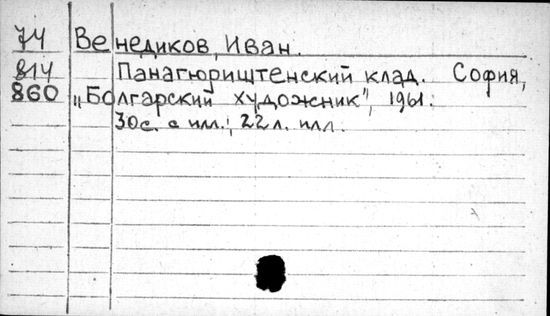 74 Венедиков, Иван.
814 Панагюриштенский клад. София,
860 „Болгарский художник", 1961.
30с. с илл.; 22 л. илл.